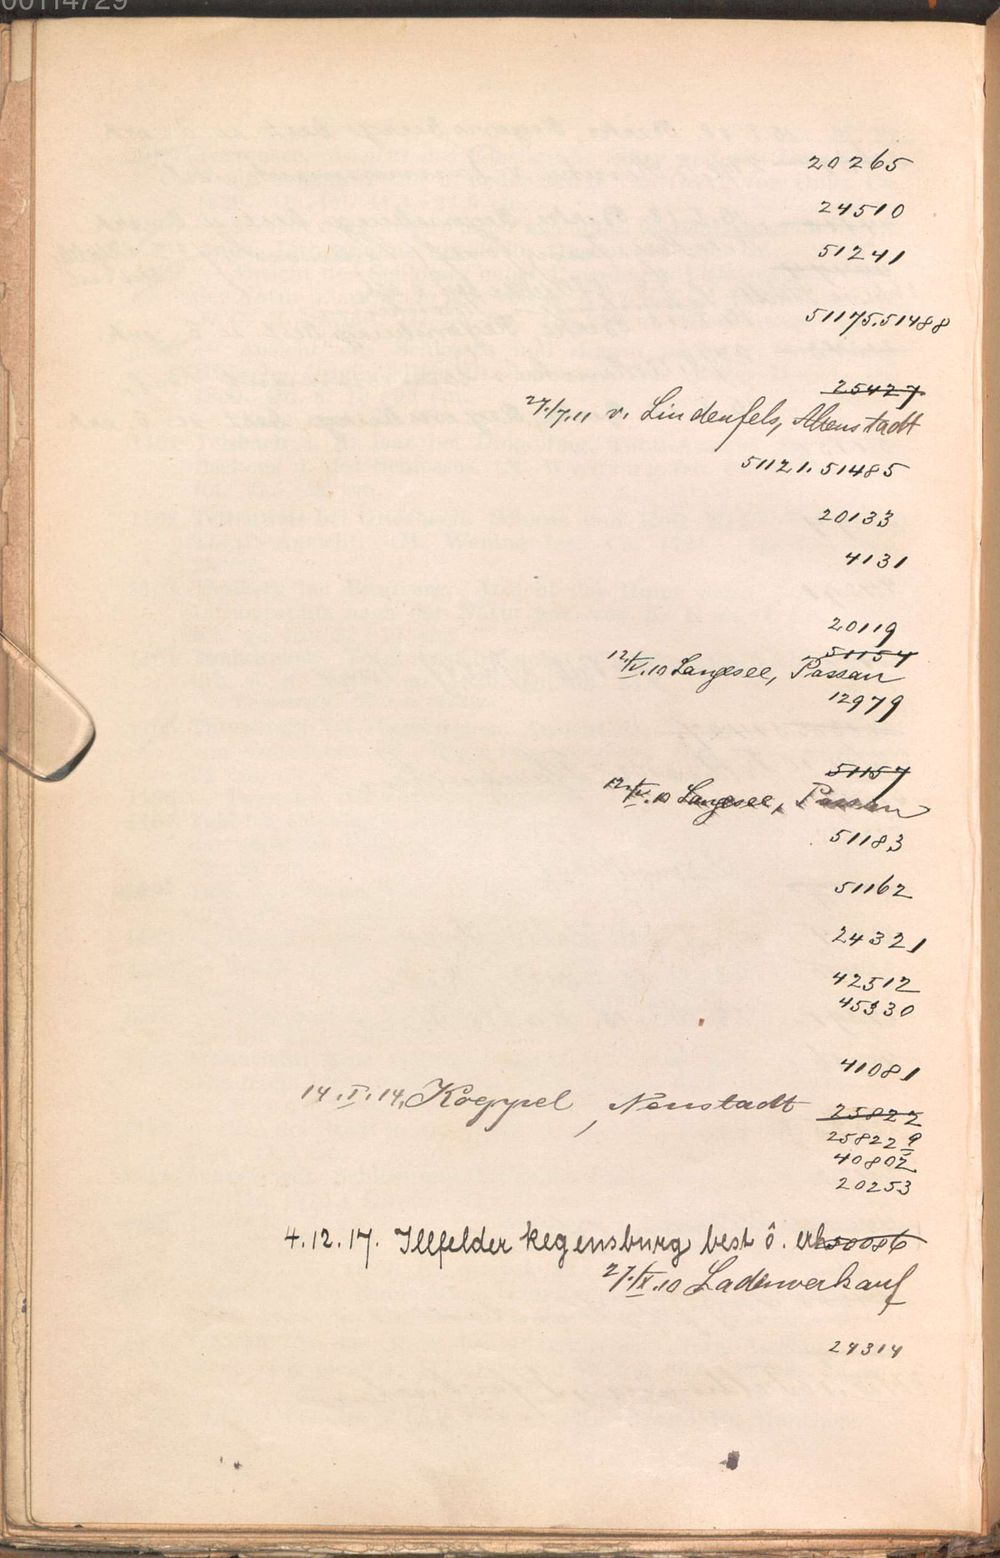 00114729
20265
24510
51241
51175.51488
25427
27./7.11 v. Lindenfels, Altenstadt
51121.51485
20133
4131
20119
51154
12./IV.10 Langesee, Passau
12979
51157
12./IV.10 Langesee, Passau
51183
51162
24321
42512
45330
41081
14.I.14, Koeppel, Neustadt 25822
25822a
40802
20253
4.12.17. Illfelder Regensburg best ô. erh 50086
27./IX.10 Ladenverkauf
24314